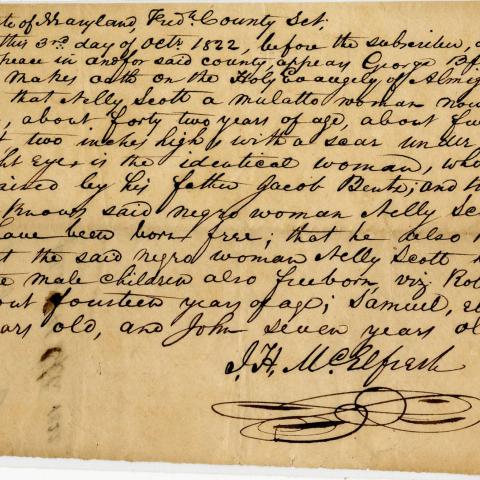 te of Maryland, Fredk. County Sct.
this 3rd. day of Octr. 1822, before the subscriber, a
peace in and for said county, appears George B
makes oath on the Holy Evangely of Almig
that Nelly Scott a mulatto woman now
, about forty two years of age, about fiv
t two inches high, with a scar under
ht eye, is the identical woman, who
ained by his father Jacob Bentz; and th
knows said negro woman Nelly Sc
have been born free; that he also k
t the said negro woman Nelly Scott h
e male children also freeborn, viz, Rob
out fourteen years of age; Samuel, el
ears old, and John seven years ol
J. H. McElfresh
1822